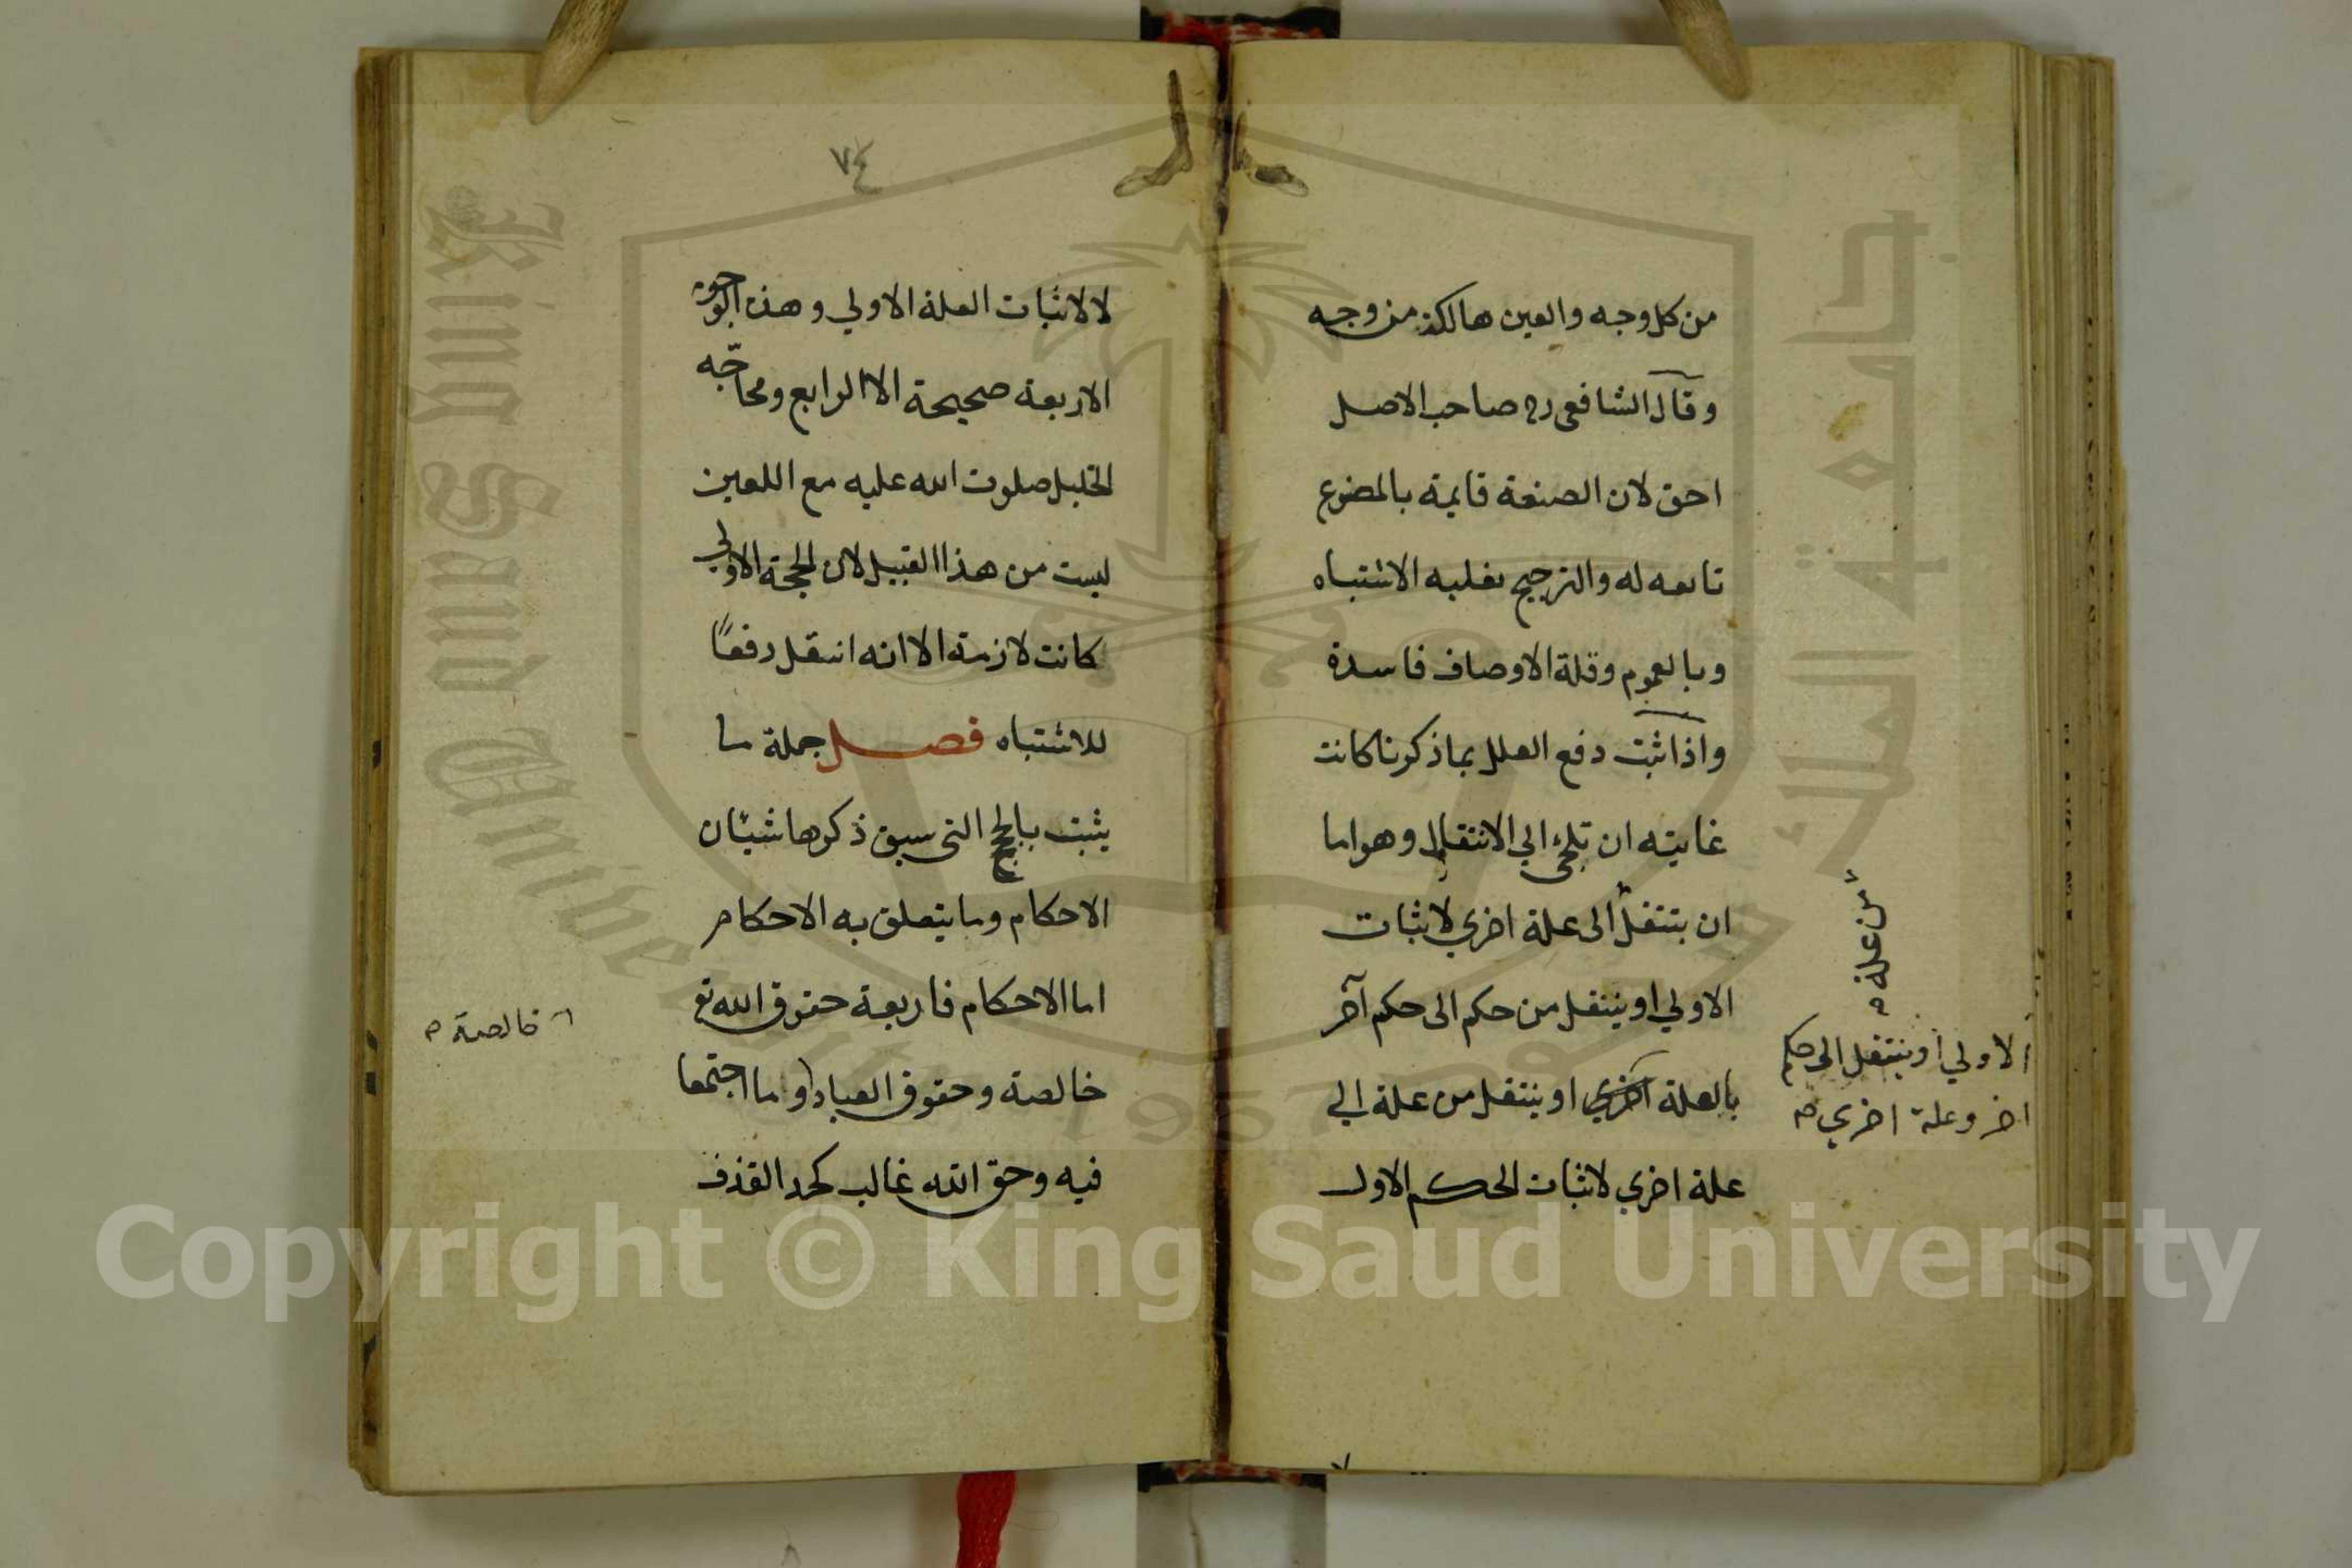 من كل وجه والعين هالكة من وجه
وقال الشافعي رح صاحب الاصل
احق لان الصنعة قايمة بالمصنوع
تابعه له والترجيح بغلبه الاشتباه
وبالعموم وقلة الاوصاف فاسدة
واذا ثبت دفع العلل بما ذكرنا كانت
غايته ان تلجئ الي الانتقال وهو اما
ان ينتقل الى علة اخري لاثبات
الاولي او ينتقل من حكم الى حكم آخر
بالعلة اخري او ينتقل من علة الي
علة اخري لاثبات الحكم الاول
من علة
الاولي او ينتقل الى حكم
اخر وعلة اخري
٧٤
لا لاثبات العلة الاولي وهذه الوجوه
الاربعة صحيحة الا الرابع ومحاجّه
الخليل صلوت الله عليه مع اللعين
ليست من هذا القبيل لان الحجة الاولي
كانت لازمة الا انه انتقل دفعًا
للاشتباه فصل جملة ما
يثبت بالحجج التي سبق ذكرها شيئان
الاحكام وما يتعلق به الاحكام
اما الاحكام فاربعة حقوق الله تع
خالصة وحقوق العباد وما اجتمعا
فيه وحق الله غالب كحد القذف
خالصة
Copyright © King Saud University
King Saud University
جامعة الملك سعود
1957